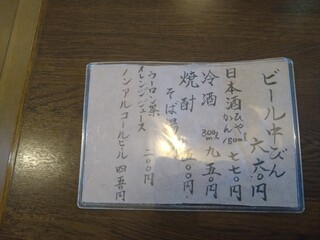 ビール中びん 六六〇円
日本酒 ひや かん 180ml 七七〇円
冷酒 300ml 九五〇円
焼酎 五〇〇円
そば湯
ウーロン茶
オレンジジュース 二〇〇円
ノンアルコールビール 四五〇円